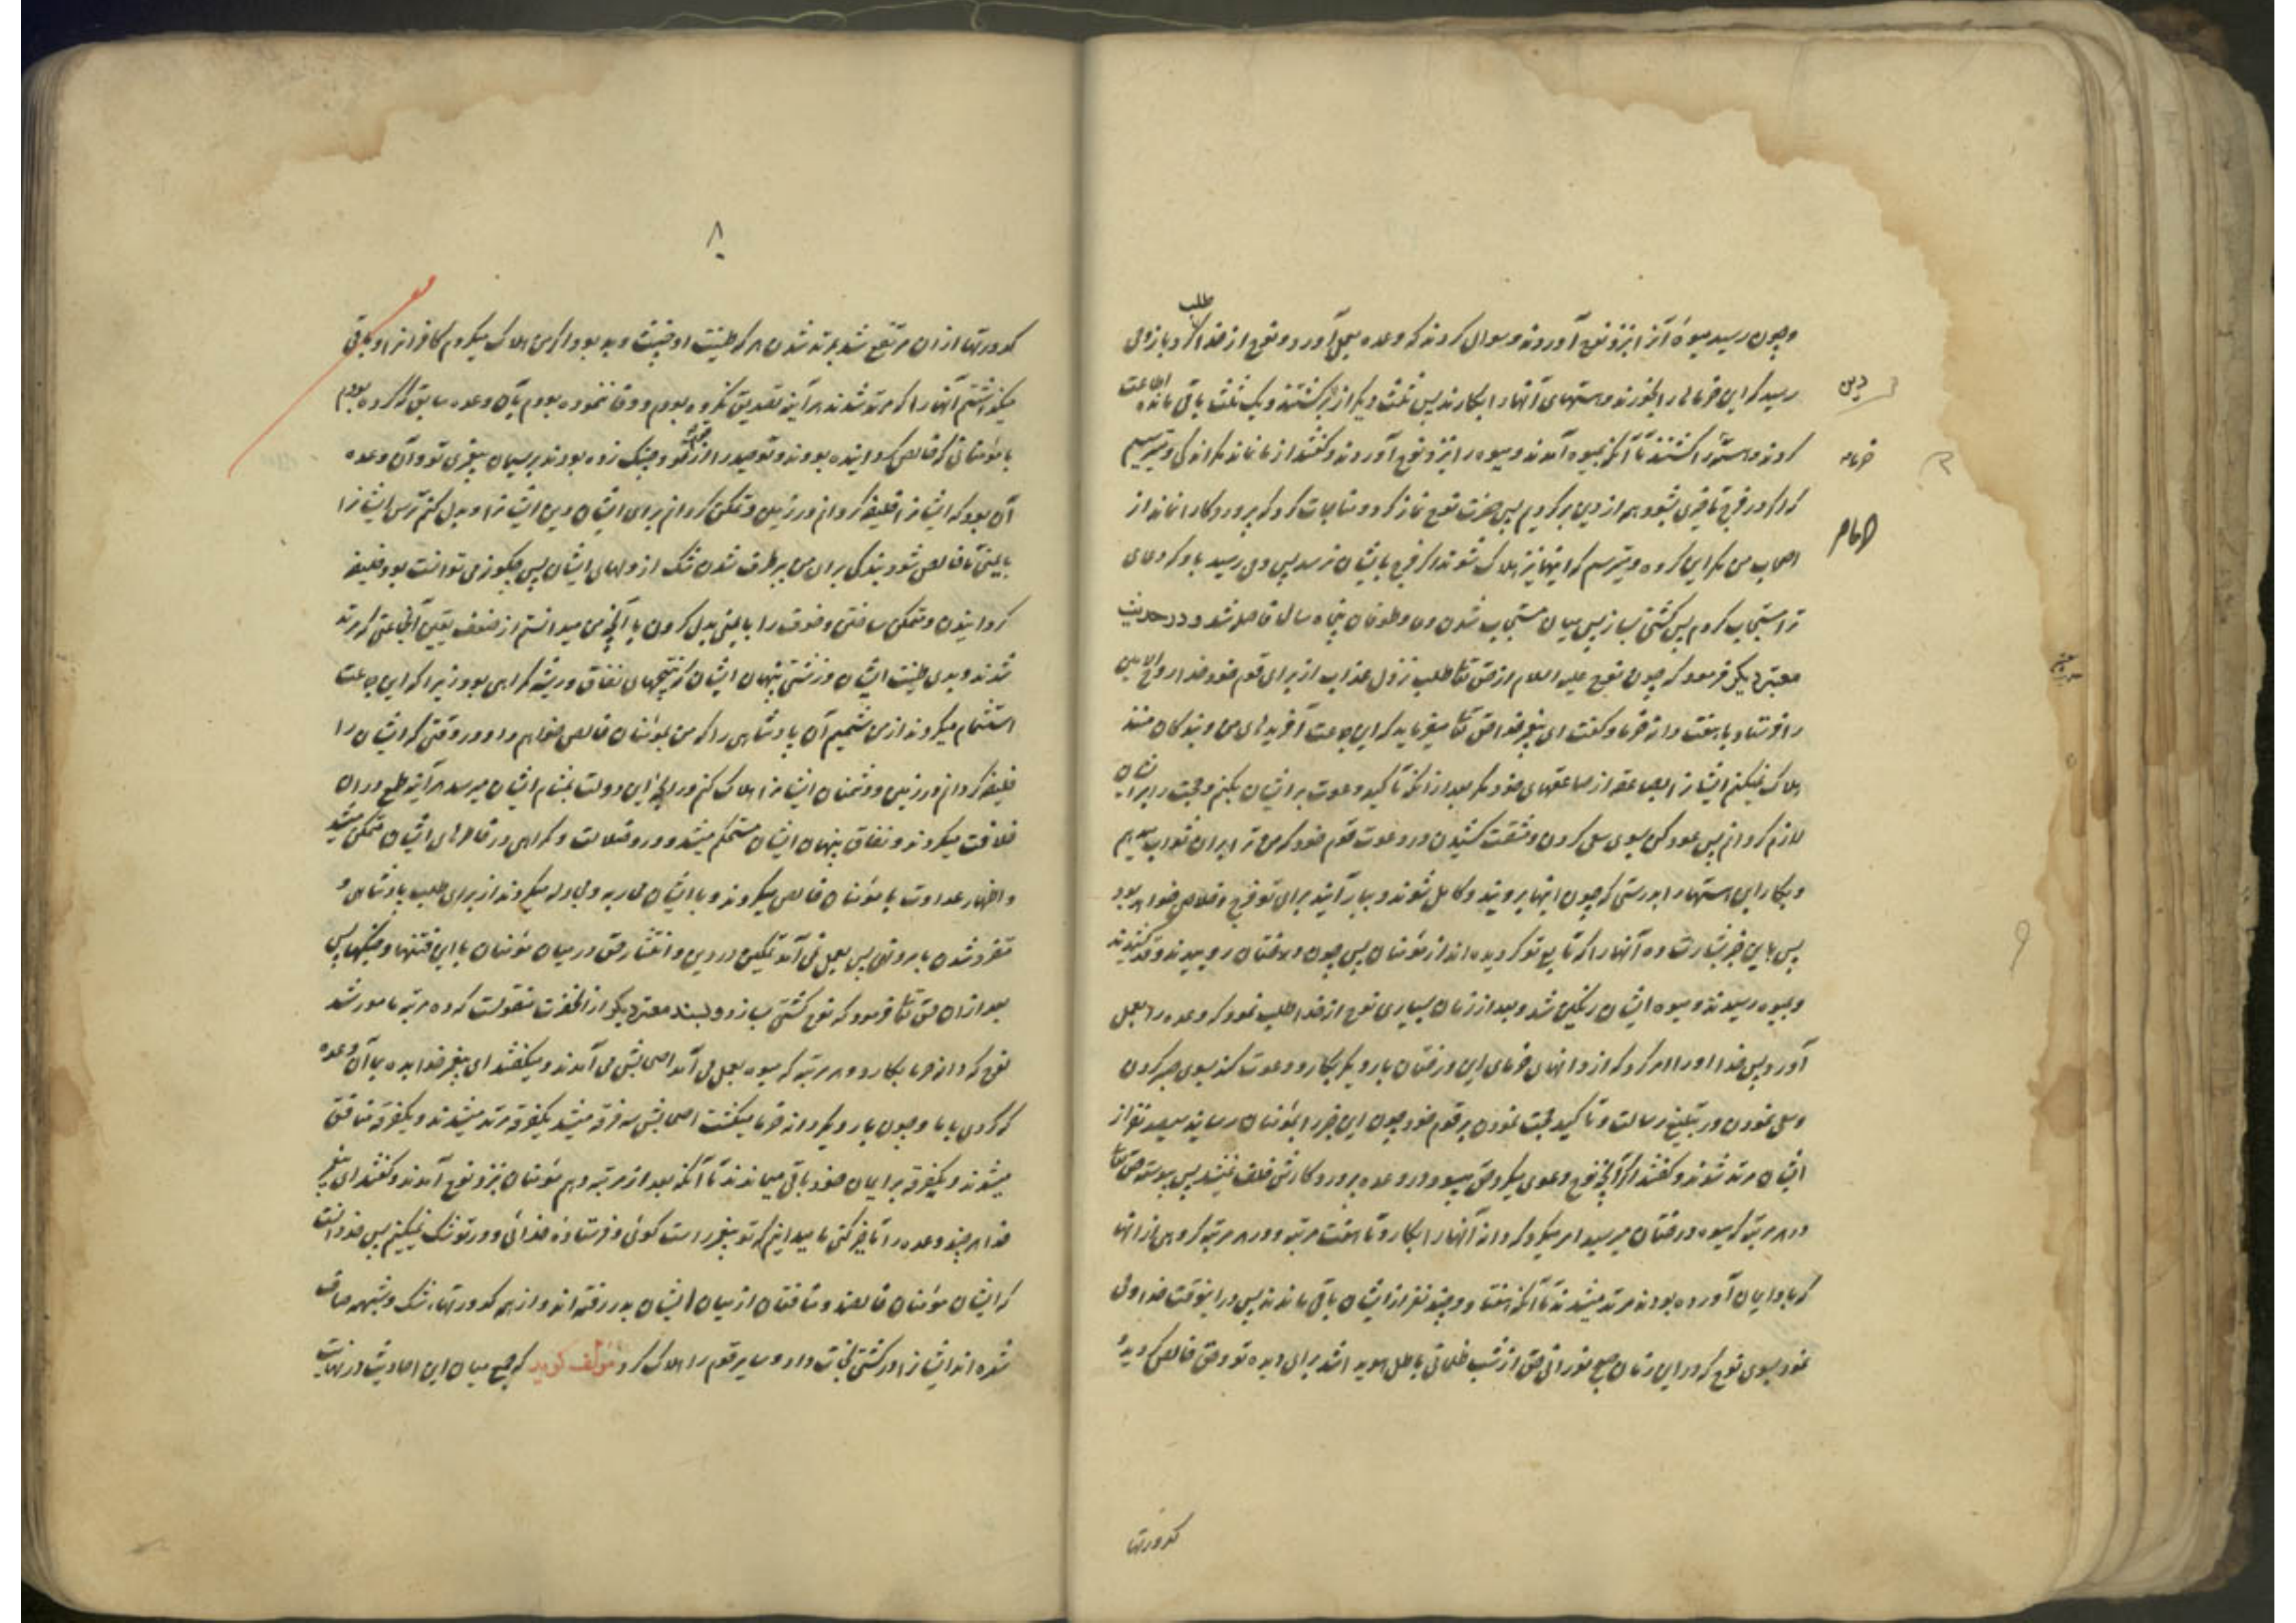 طلب
وچون رسید میوۀ آنرا بنزد نوح آوردند و سوال کردند که وعده بعمل آورد و نوح از خدا کرد باز وحی
رسید که این خرماها را بخورند و هستهای آنها را بکارند پس ثلث دیگر از برگشتند و یک ثلث باقی ماندند اطاعت
دین
کردند و هستها را کشتند تا آنکه بمیوه آمدند و میوه را بنزد نوح آوردند و گفتند از ما نماند مگر اندکی و میترسیم
خرما
که اگر در فرج تاخیری بشود همه از دین برگردیم پس حضرت نوح نماز کرد و مناجات کرد که پروردگارا نماند از
اصحاب من مگر این گروه و میترسم که اینها نیز هلاک شوند اگر فرج بایشان نرسد پس وحی رسید باو که دعای
ترا مستجاب کردم پس کشتی بساز پس میان مستجاب شدن دعا و طوفان پنجاه سال فاصله شد و در حدیث
معتبر دیگر فرمود که چون نوح علیه السلام از حق تعالی طلب نزول عذاب از برای قوم خود خدا روح الامین
را فرستاد با هفت دانه خرما و گفت ای پیغمبر خدا حق تعالی میفرماید که این جماعت آفریدهای من و بندگان منند
هلاک نمیکنم ایشانرا بصاعقه از صاعقهای خود مگر بعد از آنکه تاکید دعوت بر ایشان بکنم و حجت را بر ایشان
لازم گردانم پس عود کن بسوی سعی کردن و مشقت کشیدن در دعوت قوم خود که من ترا بران ثواب میدهم
و بکار این هستها را بدرستی که چون اینها برویند و کامل شوند و ببار آیند برای تو فرج و خلاص خواهد بود
پس باین خبر بشارت ده آنها را که تابع تو گردیده اند از مؤمنان پس چون درختان روییدند و قد کشیدند
و بمیوه رسیدند و میوه ایشان رنگین شد و بعد از زمان بسیاری نوح از خدا طلب نمود که وعده را بعمل
آورد پس خدا او را امر کرد که از دانهای خرمای این درختان بار دیگر بکارد و دعوت کند بسوی صبر کردن
و سعی نمودن در تبلیغ رسالت و تاکید حجت نمودن بر قوم خود چون این خبر را بمؤمنان رسانید سیصد نفر از
ایشان مرتد شدند و گفتند اگر آنچه نوح دعوی میکرد حق میبود در وعده پروردگارش خلف نمیشد پس پیوسته حق تعالی
در هر مرتبه که میوه درختان میرسید امر میکرد که دانه آنها را بکارد تا هفت مرتبه و در هر مرتبه گروهی از آنها
که باو ایمان آورده بودند مرتد میشدند تا آنکه هفتاد و چند نفر از ایشان باقی ماندند پس در اینوقت خدا وحی
نمود بسوی نوح که در این زمان صبح نورانی حق از شب ظلمانی باطل هویدا شد برای دیده تو و حق خالص گردید
کدورتها
۸
کدورتها از ان مرتفع شد بمرتد شدن هر که طینت او خبیث و بد بود و اگر من هلاک میکردم کافرانرا و باقی
میگذاشتم آنها را که مرتد شدند هرآینه تصدیق نکرده بودم و وفا ننموده بودم بآن وعده سابق که کرده بودم
با مؤمنانی که خالص گردانیده بودند توحید را از و چنگ زده بودند بریسمان پیغمبری تو و آن وعده
آن بود که ایشانرا خلیفه گردانم در زمین و متمکن گردانم برای ایشان دین ایشانرا و بدل کنم ترس ایشانرا
بایمنی تا خالص شود بندگی برای من ببرطرف شدن شک از دلهای ایشان پس چگونه می توانست بود خلیفه
گردانیدن و متمکن ساختن و خوف را بایمنی بدل کردن با آنچه من میدانستم از ضعف یقین آنجماعتی که مرتد
شدند و بدی طینت ایشان و زشتی پنهان ایشان که نتیجهای نفاق و ریشه گمراهی بود زیرا که این جماعت
استشمام میکردند از من شمیم آن پادشاهی را که من بمؤمنان خالص خواهم داد در وقتی که ایشان را
خلیفه گردانم در زمین و دشمنان ایشانرا هلاک کنم و رایحه این دولت بمشام ایشان میرسید هرآینه طمع دران
خلافت میکردند و نفاق پنهان ایشان مستحکم میشد و در ضلالت و گمراهی در خاطرهای ایشان متمکن میشد
و اظهار عداوت با مؤمنان خالص میکردند و با ایشان محاربه و مجادله میکردند از برای طلب پادشاهی و
متفرد شدن بامر و نهی پس بعمل نمی آمد تمکین در دین و انتشار حق در میان مؤمنان با این فتنها و جنگها پس
بعد ازان حق تعالی فرمود که نوح کشتی بسازد و بسند معتبر دیگر از آنحضرت منقولست که ده مرتبه مامور شد
نوح که دانه خرما بکارد و هر مرتبه که میوه بعمل می آمد اصحابش می آمدند و میگفتند ای پیغمبر خدا بده بما آن وعده
که کردی با ما و چون بار دیگر دانه خرما میکشت اصحابش سه فرقه میشدند یکفرقه مرتد میشدند و یکفرقه منافق
میشدند و یکفرقه بر ایمان خود باقی میماندند تا آنکه بعد از مرتبه دهم مؤمنان بنزد نوح آمدند و گفتند ای پیغمبر
خدا هر چند وعده را تاخیر کنی ما میدانیم که تو پیغمبر راست گوئی و فرستادۀ خدائی و در تو شک نمیکنیم پس خدا دانست
که ایشان مؤمنان خالصند و منافقان از میان ایشان بدر رفته اند و از همه کدورتها و شک و شبهه صاف
شده اند ایشانرا در کشتی نجات داد و سایر قوم را هلاک کرد مؤلف گوید که جمع میان این احادیث در نهایت